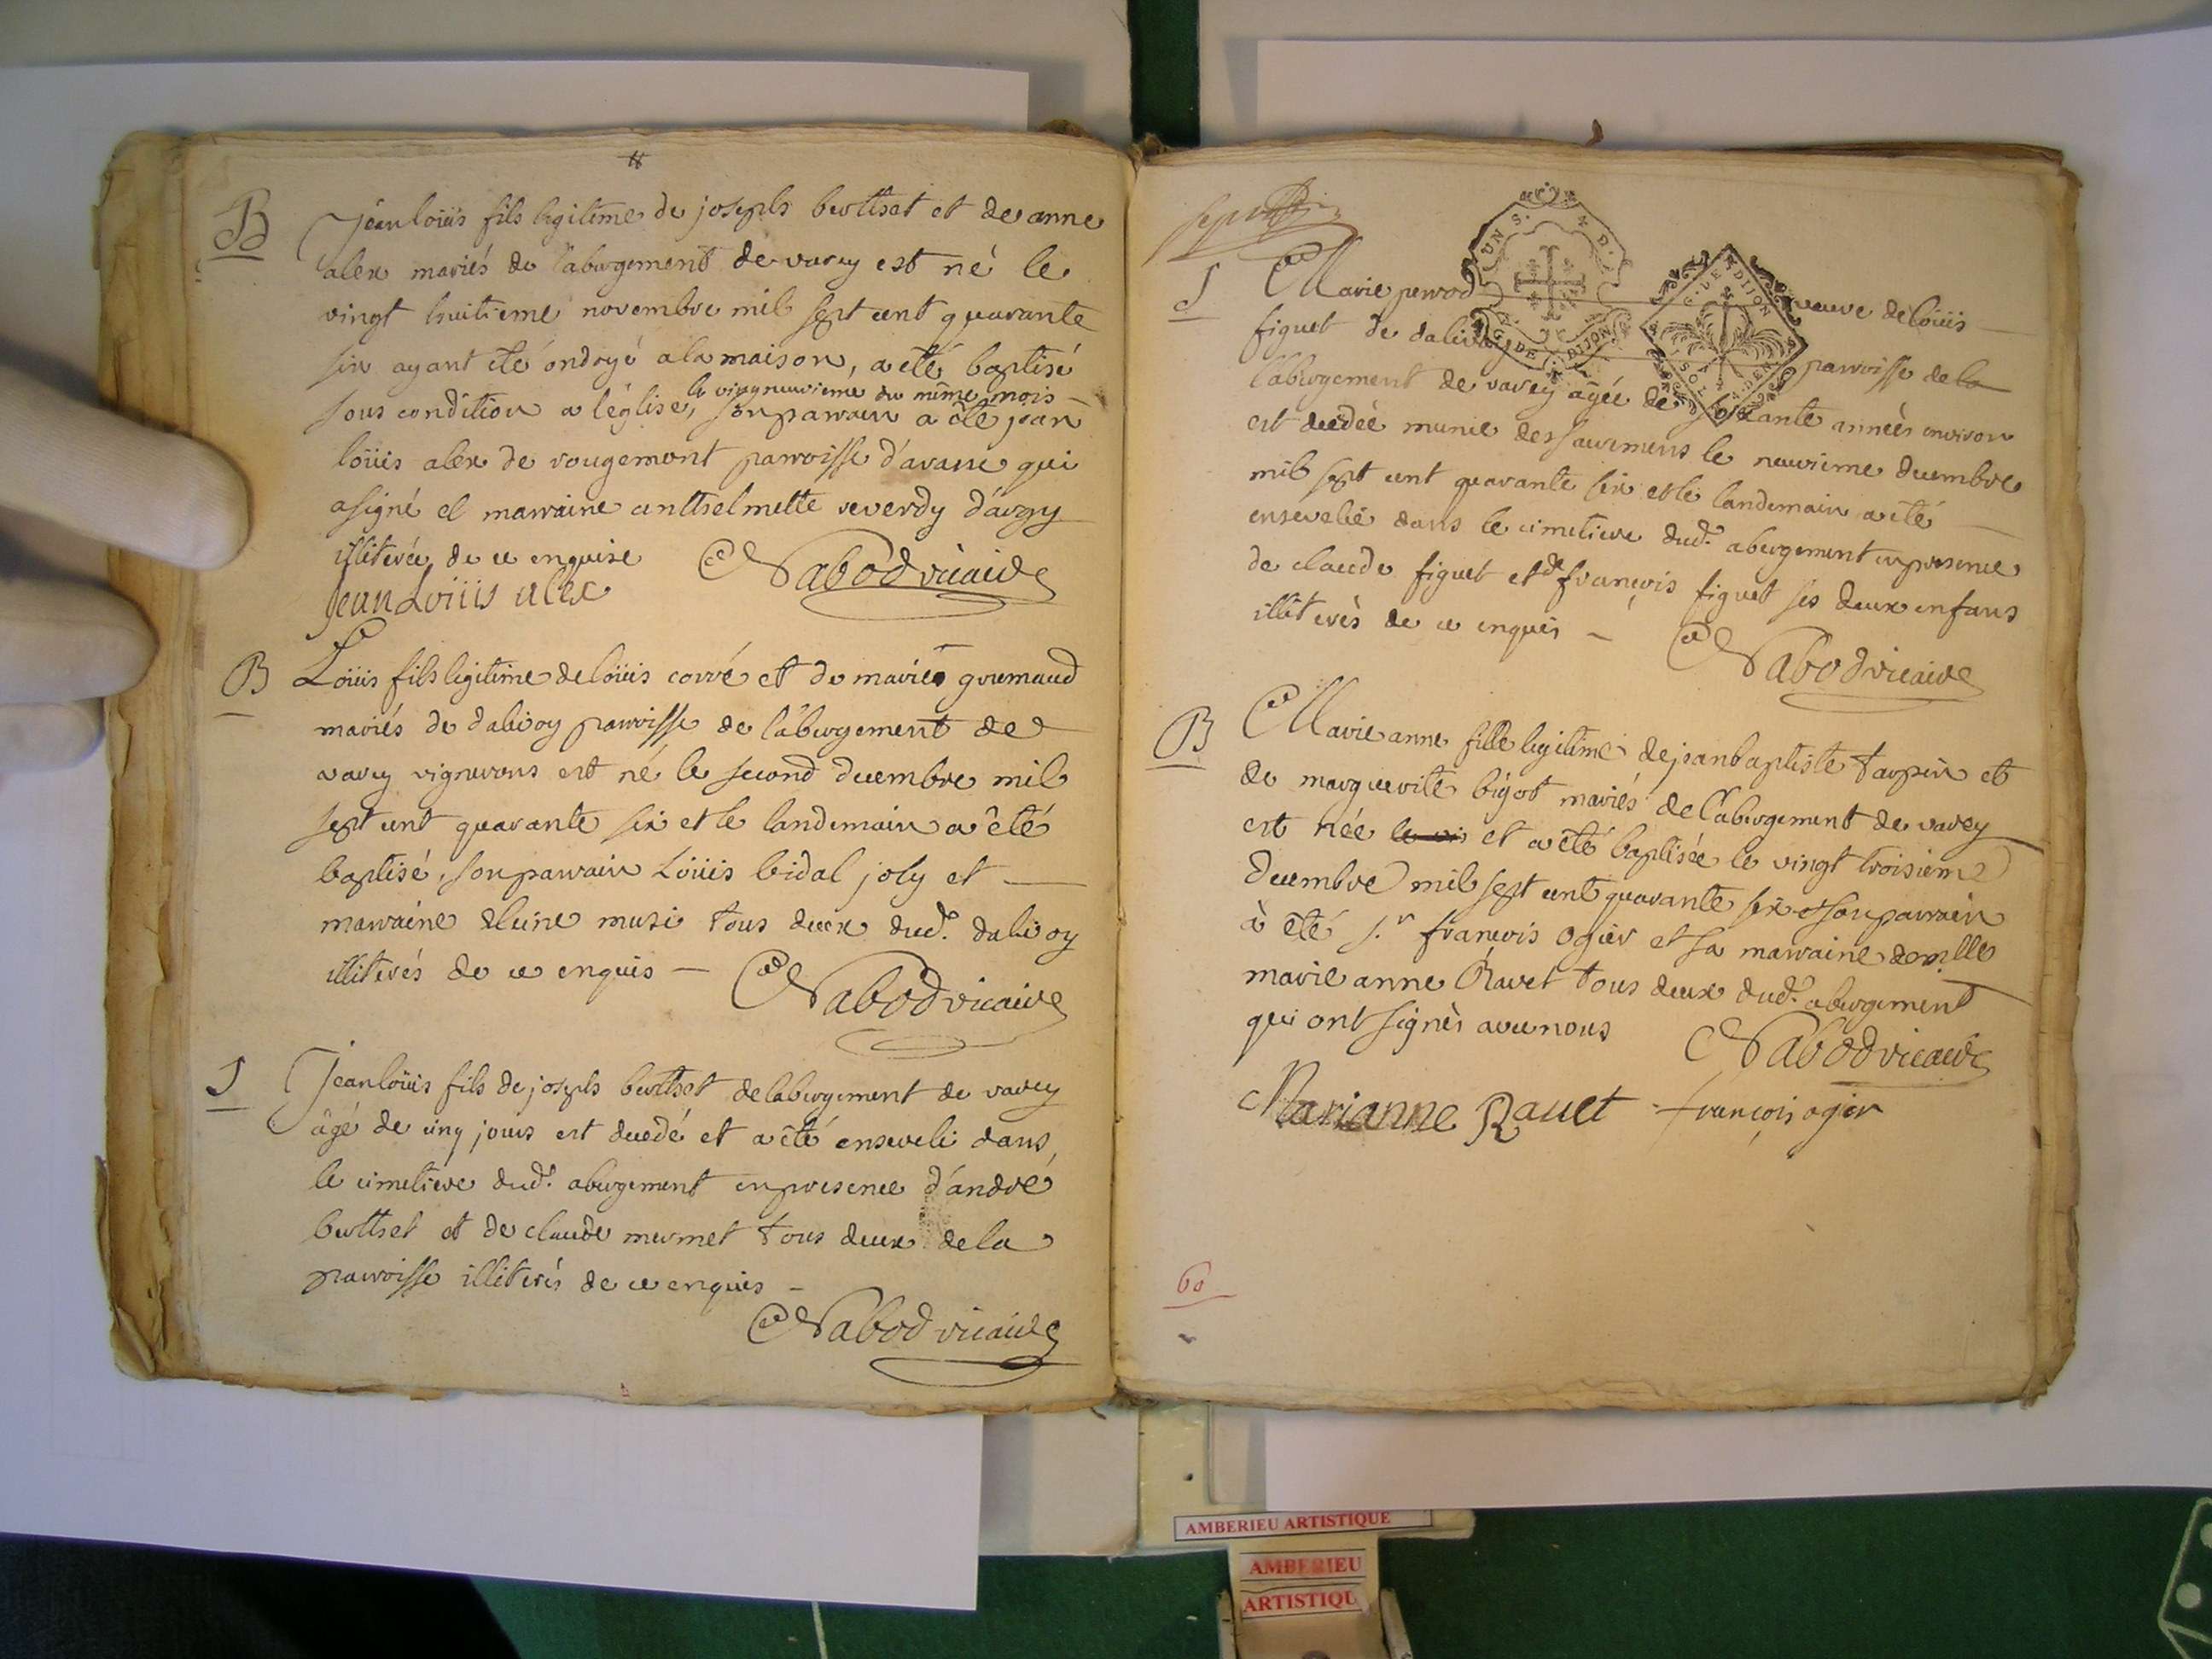 B
jean loüis fils legitime de joseph berthet et de anne
alex mariés de l'abergement de varey est né le
vingt huitieme novembre mil sept cent quarante
six ayant eté ondoyé a la maison, a eté baptisé
le vingneuvieme du même mois
sous condition a léglise, son parrain a été jean
loüis alex de rougemont parroisse d'aranc qui
a signé et marraine anthelmette reverdy
illiterée de ce enquise
C Nabod vicaire
Jean Loüis alex
B
Loüis fils legitime de loüis corré et de marie gremaud
mariés de dalivoy parroisse de l'abergement de
varey vignerons est né le second decembre mil
sept cent quarante six et le landemain a été
baptisé, son parrain Loüis bidal joly et
marraine musi tous deux dud. dalivoy
illiterés de ce enquis
C Nabod vicaire
S
jean loüis fils de joseph berthet de labergement de varey
âgé de cinq jours est decedé et a été enseveli dans
le cimetiere dud. abergement en presence d'andré
berthet et de claude mermet tous deux de la
parroisse illiterés de ce enquis
C Nabod vicaire
S
Marie perrod veuve de loüis
figuet de dalivoy parroisse de la
l'abergement de varey âgée de soixante années environ
est decedée munie des sacremens le neuvieme decembre
mil sept cent quarante six et le landemain a été
ensevelie dans le cimetiere dud. abergement en presence
de claude figuet et de françois figuet ses deux enfans
illiterès de ce enquis
C Nabod vicaire
B
Marie anne fille legitime de jean baptiste tarpin et
de marguerite bigot mariés de l'abergement de varey
est née et a été baptisée le vingt troisieme
decembre mil sept cent quarante six son parrain
à été s.r françois ogier et sa marraine demlle
marie anne Ravet tous deux dud. abergement
qui ont signès avec nous
C Nabod vicaire
Marianne Rauet françois ogier
60
AMBERIEU ARTISTIQUE
AMBERIEU
ARTISTIQU